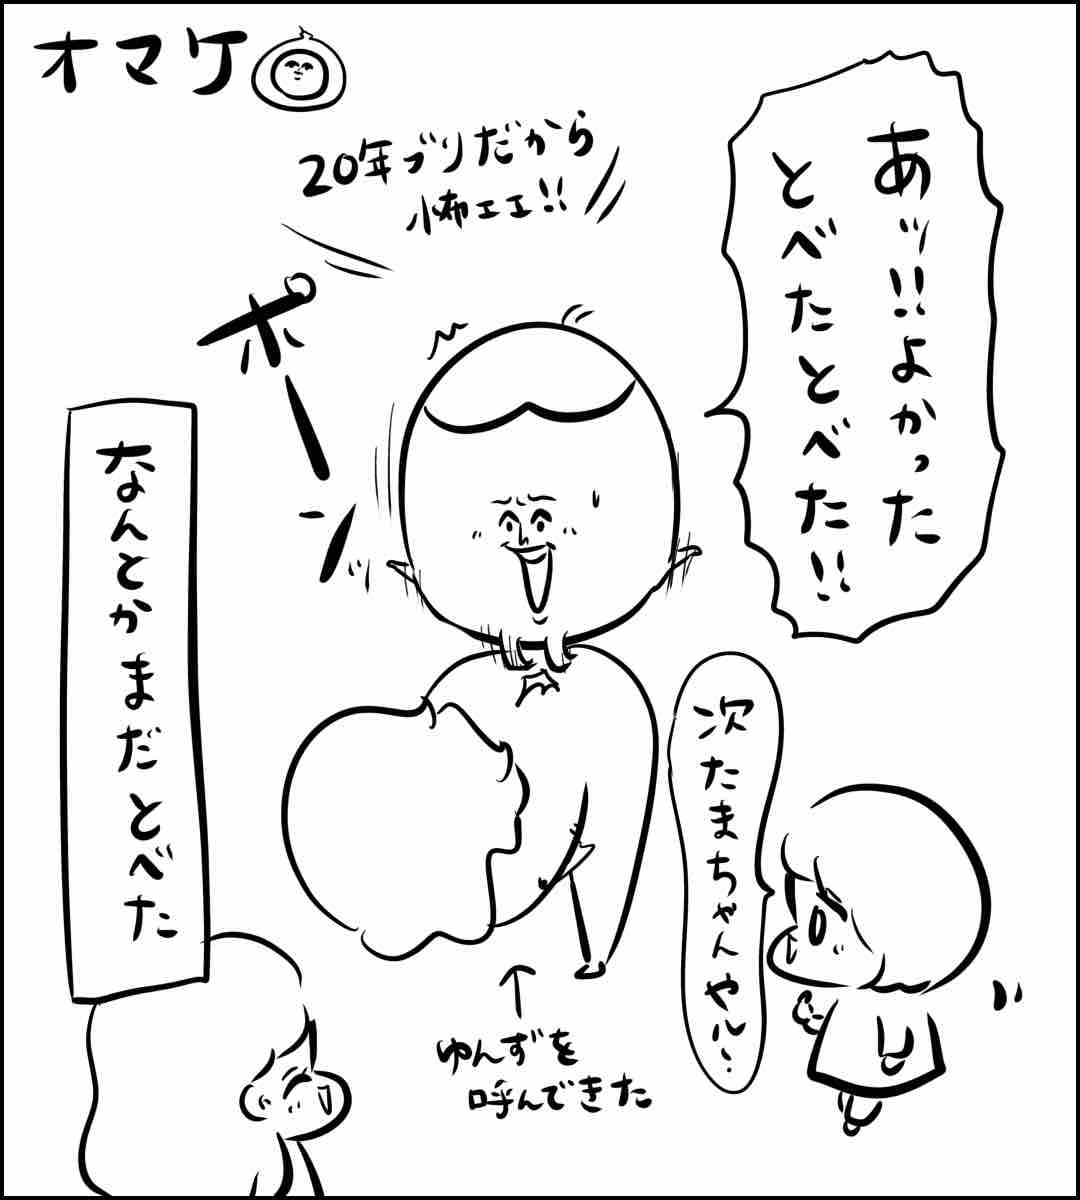 オマケ
あッ!!よかった
とべたとべた!!
20年ブリだから
怖ェェ!!
ポーン
なんとかまだとべた
次たまちゃんやル〜
ゆんずを
呼んできた